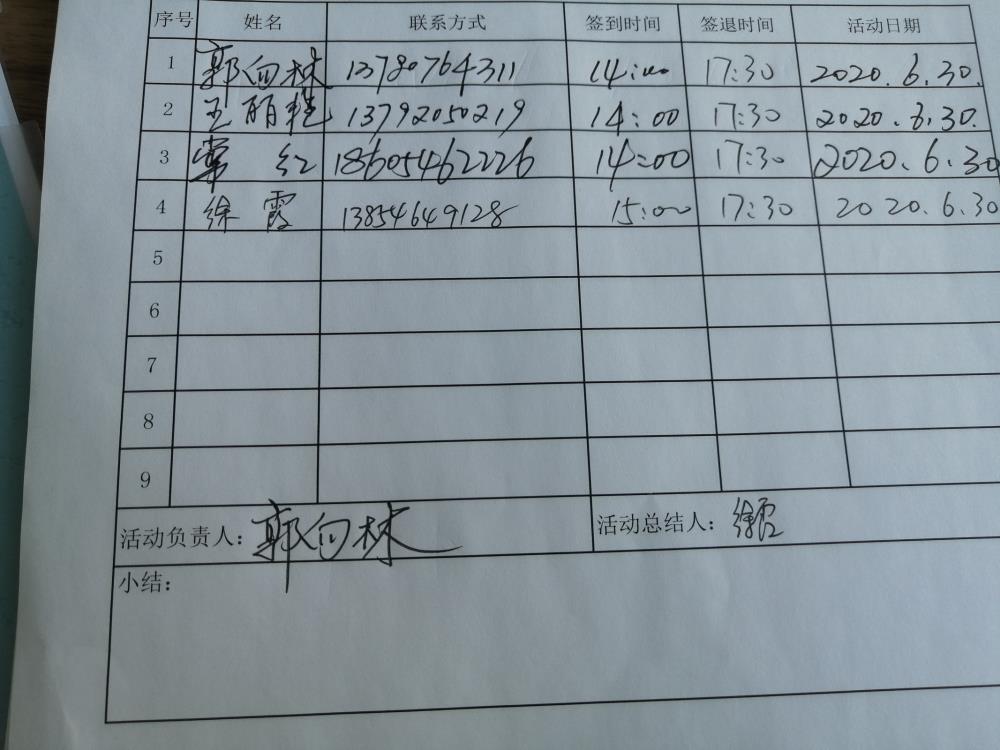 序号 姓名 联系方式 签到时间 签退时间 活动日期
1 郭向林 13780764311 14:00 17:30 2020.6.30.
2 王丽程 13792050219 14:00 17:30 2020.6.30.
3 常红 18605462226 14:00 17:30 2020.6.30
4 徐霞 13854649128 15:00 17:30 2020.6.30
5
6
7
8
9
活动负责人：郭向林 活动总结人：徐霞
小结：